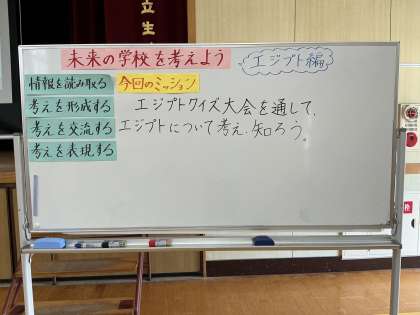 立
生
未来の学校を考えよう
エジプト編
情報を読み取る
今回のミッション
考えを形成する
エジプトクイズ大会を通して、
考えを交流する
エジプトについて考え、知ろう。
考えを表現する